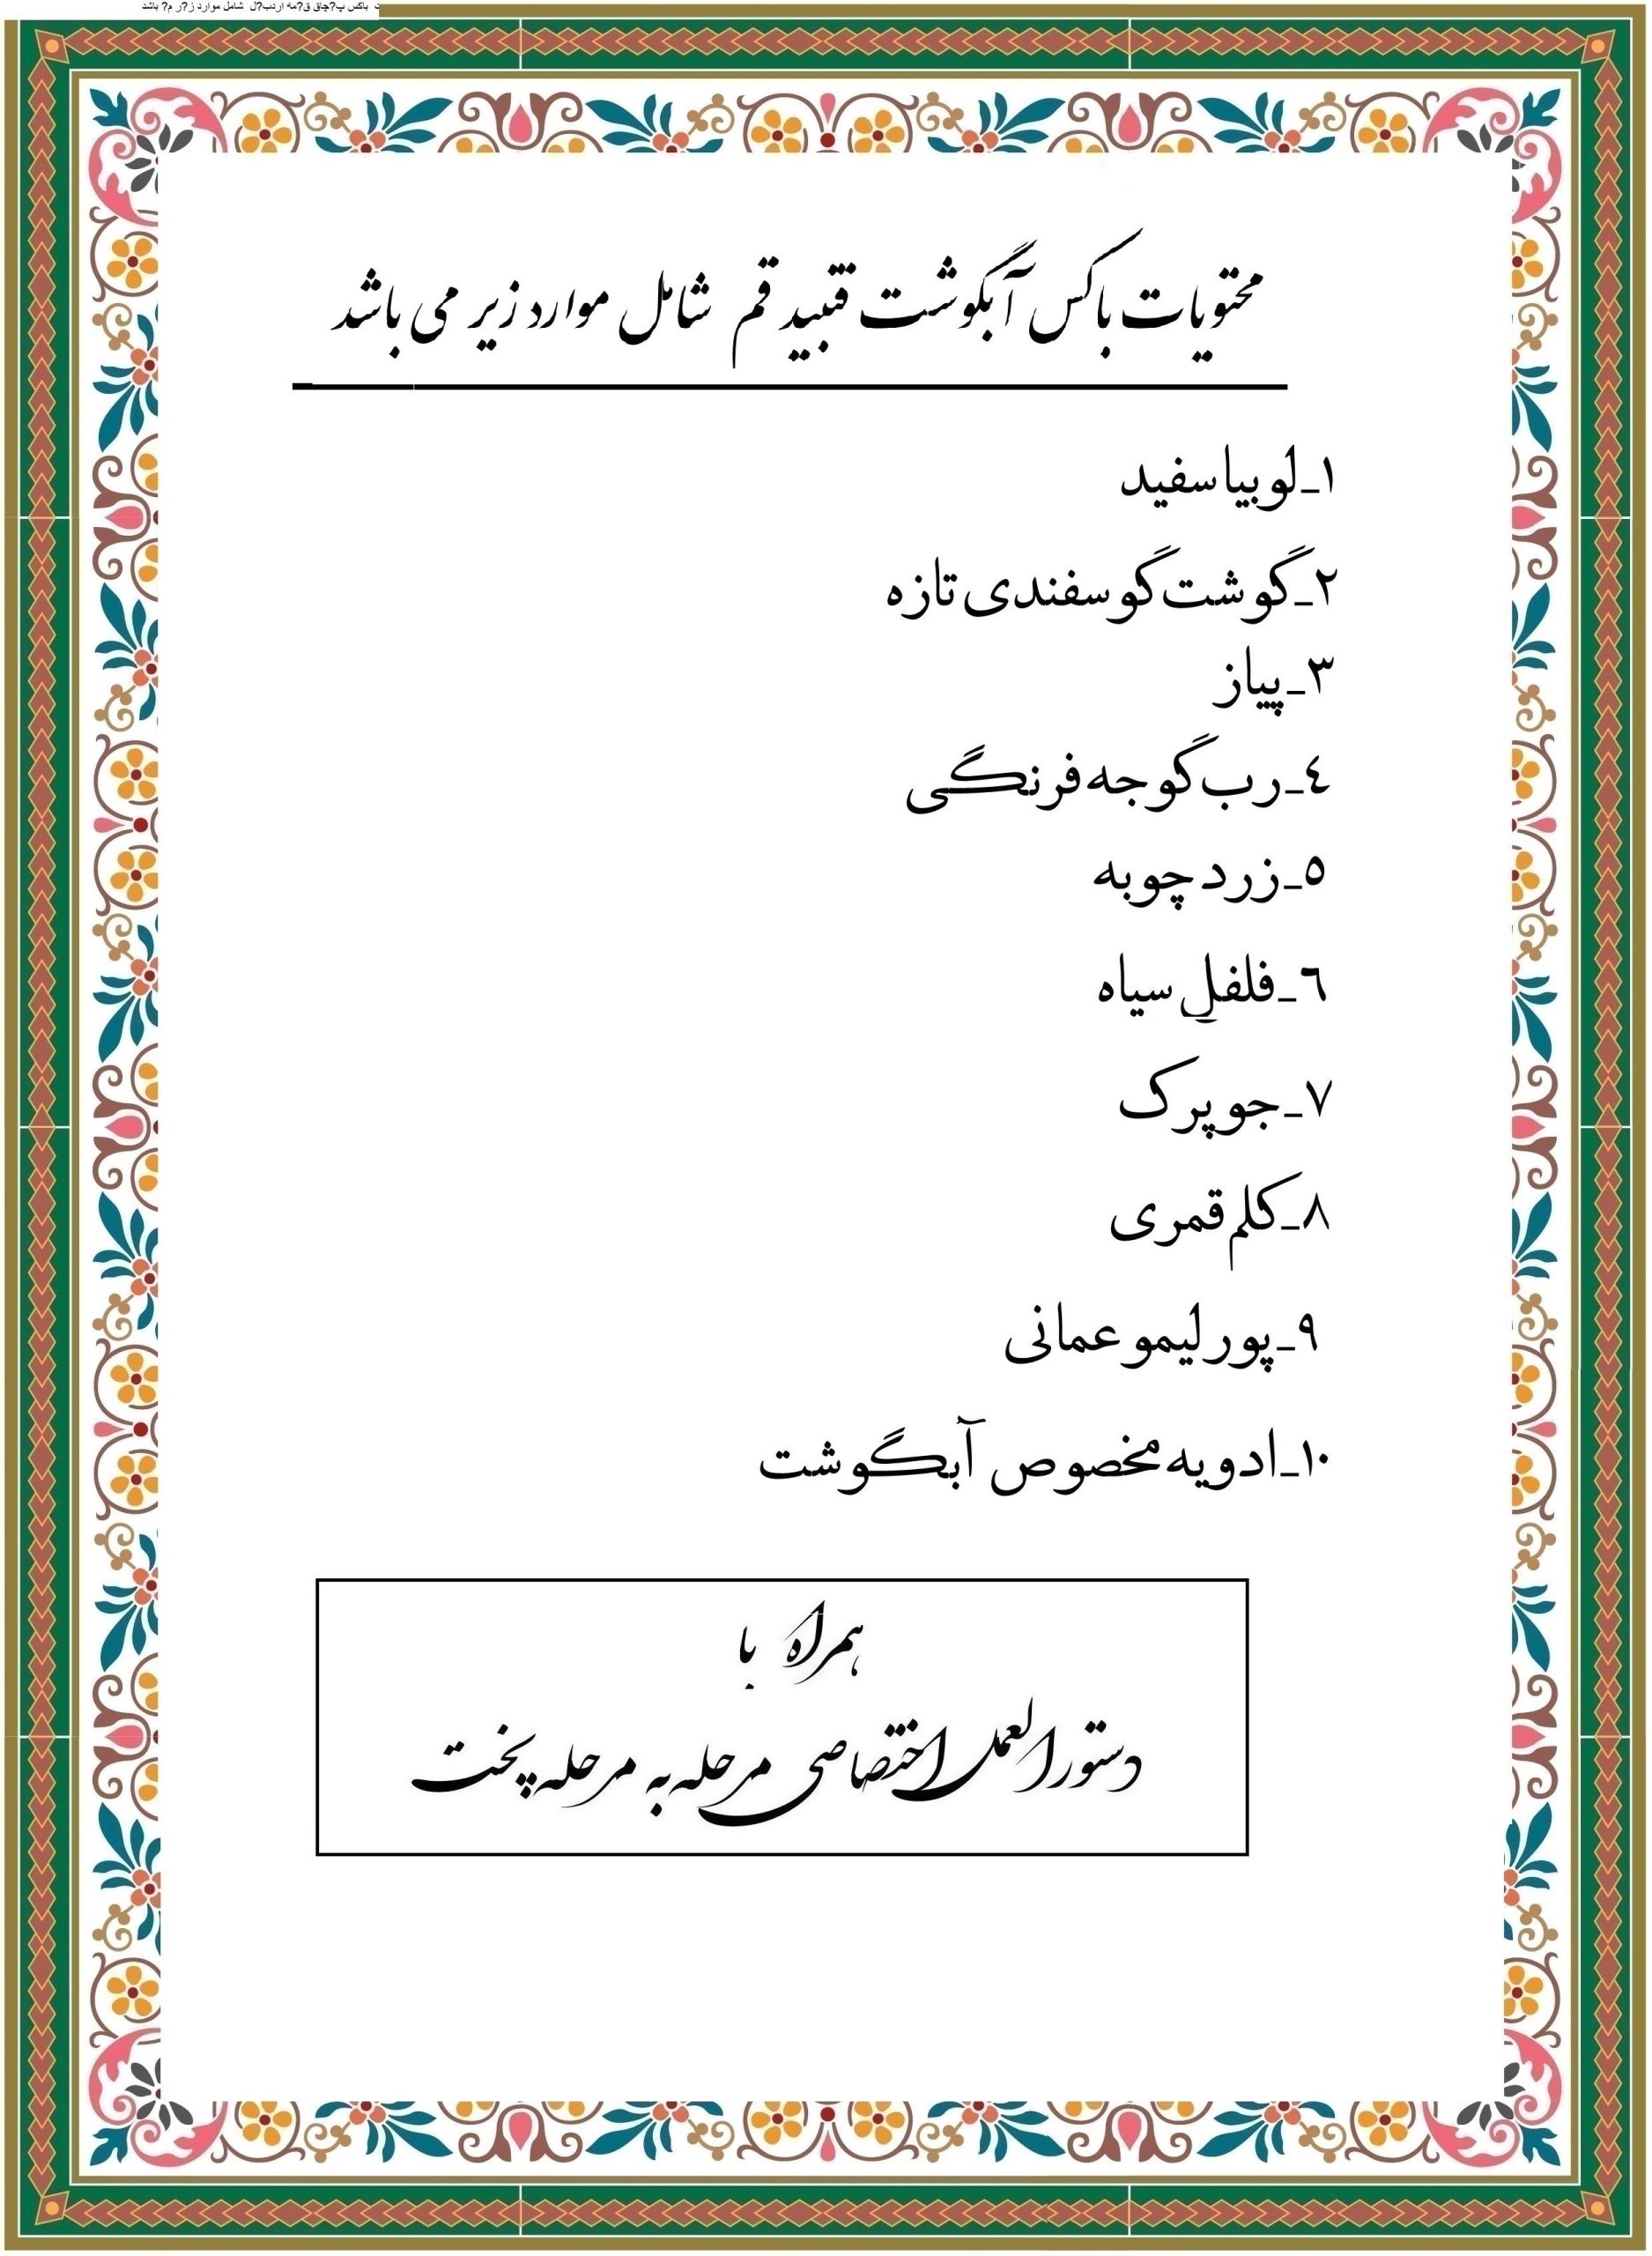 باکس پ?چاق ق?مه اردب?ل شامل موارد ز?ر م? باشد
محتویات باکس آبگوشت قنبید قم شامل موارد زیر می باشد
۱_لوبیا سفید
۲_گوشت گوسفندی تازه
۳_پیاز
٤_رب گوجه فرنگی
٥_زردچوبه
٦_فلفل سیاه
۷_جو پرک
۸_کلم قمری
۹_پور لیمو عمانی
۱۰_ادویه مخصوص آبگوشت
همراه با
دستورالعمل اختصاصی مرحله به مرحله پخت